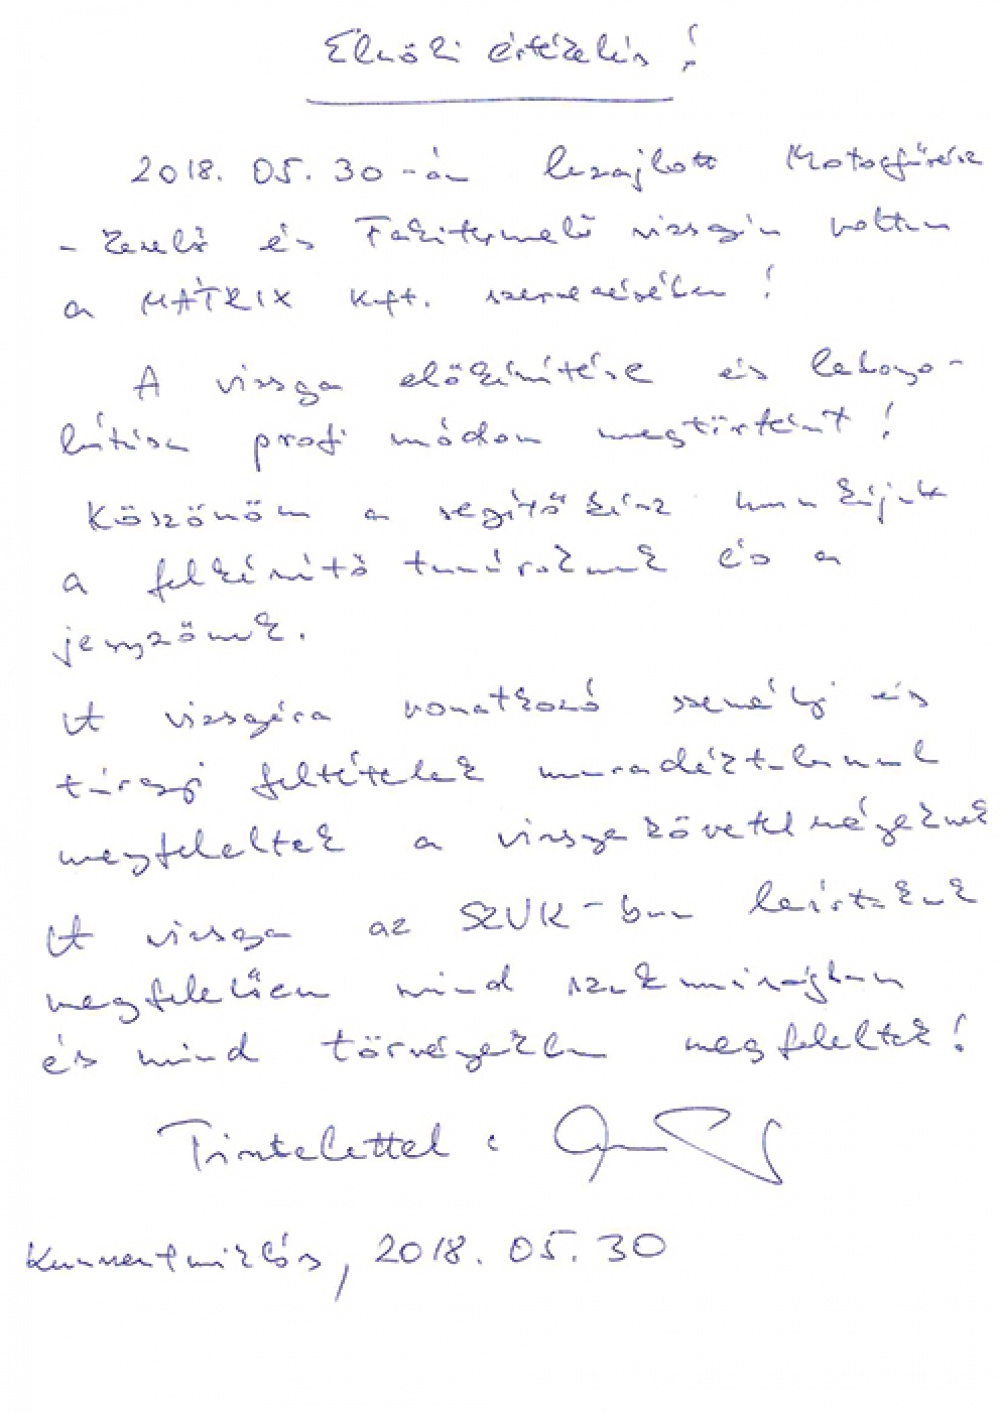 Elnöki értékelés!
2018. 05. 30-án lezajlott Motorfűrész
-kezelő és Fakitermelő vizsgán voltam
a MÁTRIX Kft. szervezésében!
A vizsga előkészítése és lebonyo-
lítása profi módon megtörtént!
Köszönöm a segítőkész munkájuk
a felkészítő tanároknak és a
jegyzőnek.
A vizsgára vonatkozó személyi és
tárgyi feltételek maradéktalanul
megfeleltek a vizsgakövetelményeknek
A vizsga az SZVK-ban leírtaknak
megfelelően mind szakmaiságban
és mind törvényekben megfeleltek!
Tisztelettel:
Kunszentmiklós, 2018. 05. 30